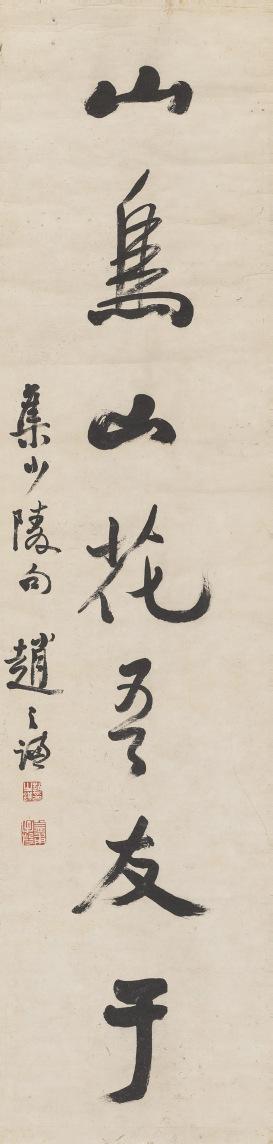 山鳥山花吾友于
集少陵句 趙之謙